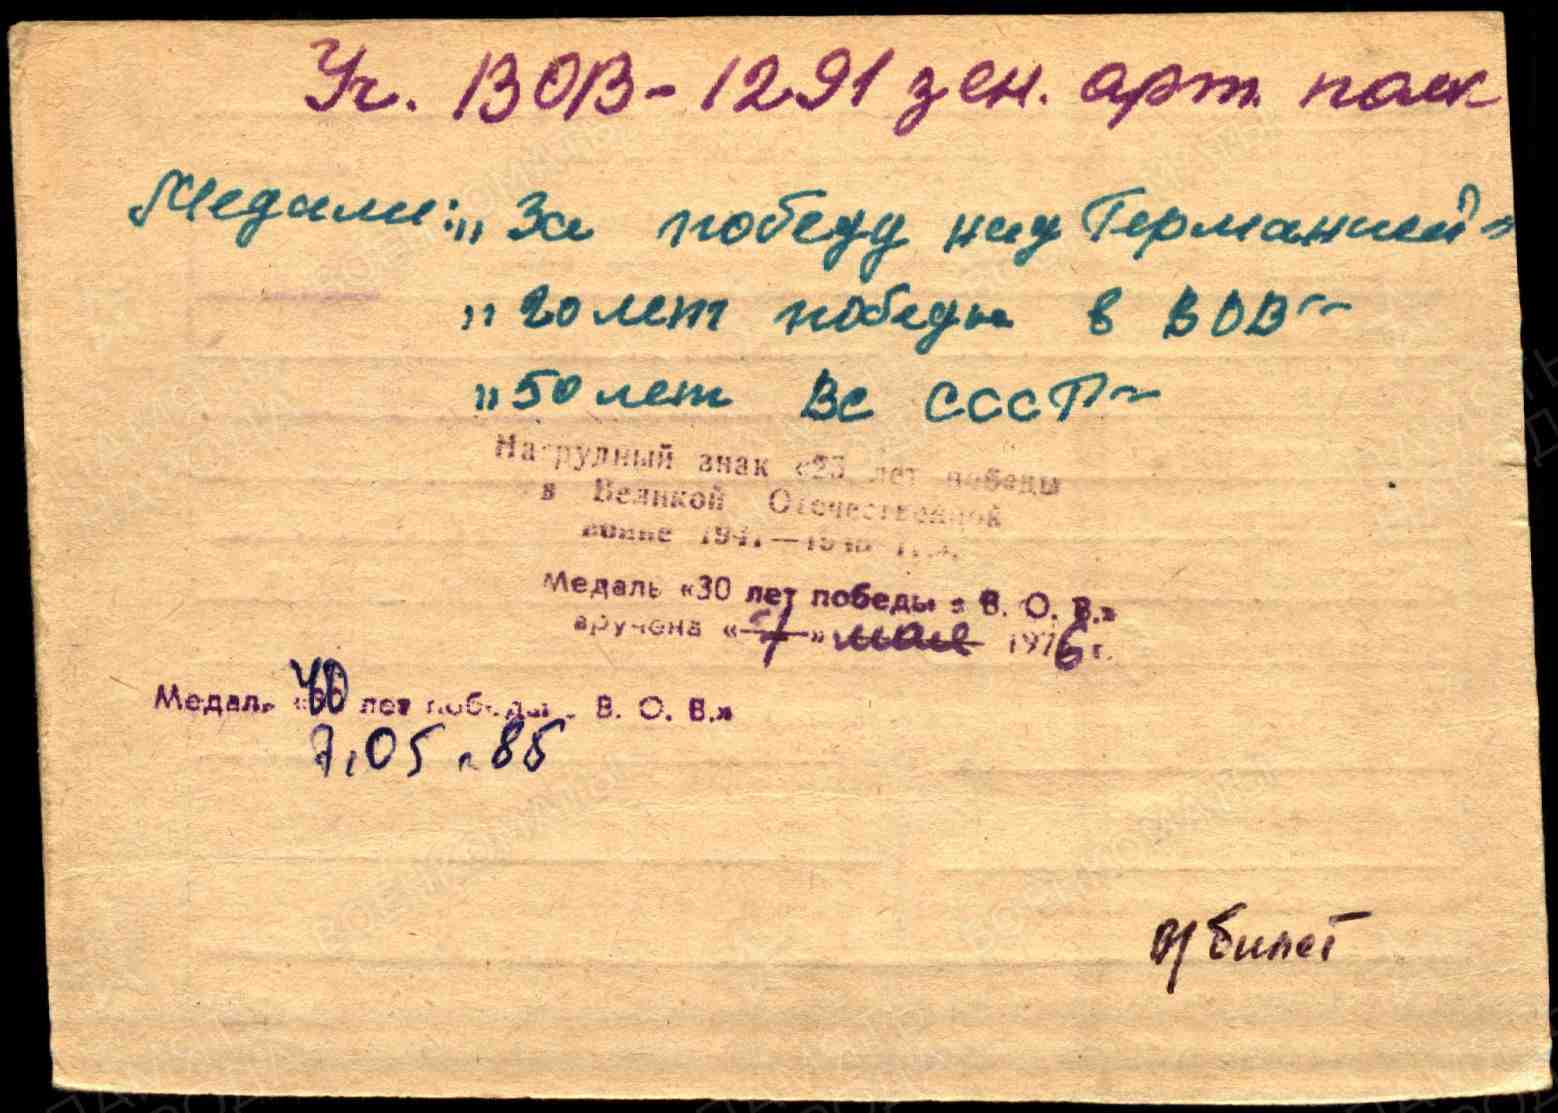 Уч. ВОВ - 1291 зен. арт. полк
Медали: „За победу над Германией"
„20 лет победы в ВОВ"
„50 лет ВС СССР"
Нагрудный знак «25 лет победы
в Великой Отечественной
войне 1941—1945 гг.».
Медаль «30 лет победы в В. О. В.»
вручена « » мая 1976 г.
Медаль «40 лет победы в В. О. В.»
7.05.85
в/билет